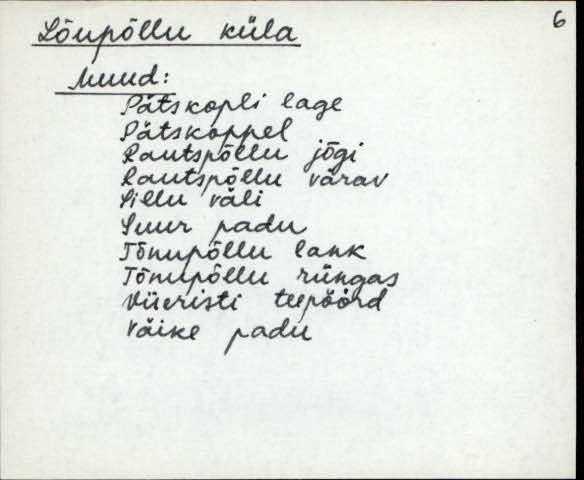 6
Lõupõllu küla
Muud:
Pätskopli lage
Pätskoppel
Rautspõllu jõgi
Rautspõllu värav
Sillu väli
Suur padu
Tõnupõllu lank
Tõnupõllu rüngas
Viieristi teepöörd
Väike padu